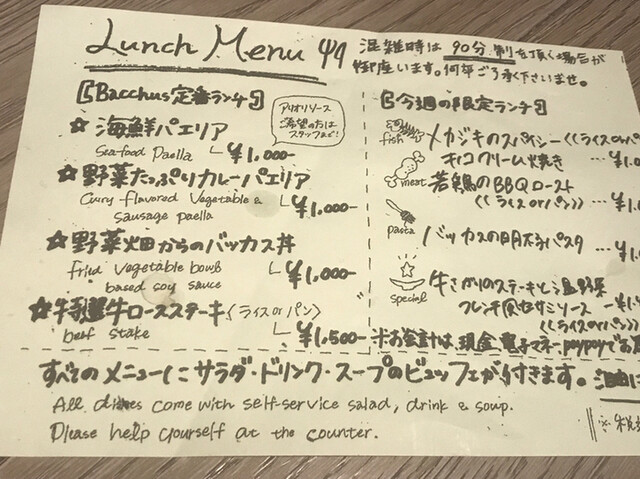 Lunch Menu
混雑時は 90分制を頂く場合が
御座います。何卒ご了承下さいませ。
【Bacchus定番ランチ】
アリオリソース
ご希望の方は
スタッフまで!
☆海鮮パエリア
Seafood Paella
¥1,000-
☆野菜たっぷりカレーパエリア
Curry flavored Vegetable &
sausage paella
¥1,000-
☆野菜畑からのバッカス丼
fried vegetable bowl
based soy sauce
¥1,000-
☆特選牛ロースステーキ〈ライスorパン〉
beef stake
¥1,500-
【今週の限定ランチ】
fish
メカジキのスパイシー《ライスorパ
チョコクリーム焼き …¥1,0
meat
若鶏のBBQロースト
《ライスorパン》…¥1,0
pasta
バッカスの明太子パスタ
…¥1
special
牛さがりのステーキと温野菜
フレンチ セサミソース …¥1
《ライスorパン》
※お会計は、現金、電子マネー、paypayでお
すべてのメニューにサラダ・ドリンク・スープのビュッフェが付きます。ご自由に
All dishes come with self-service salad, drink & soup.
Please help yourself at the counter.
※税